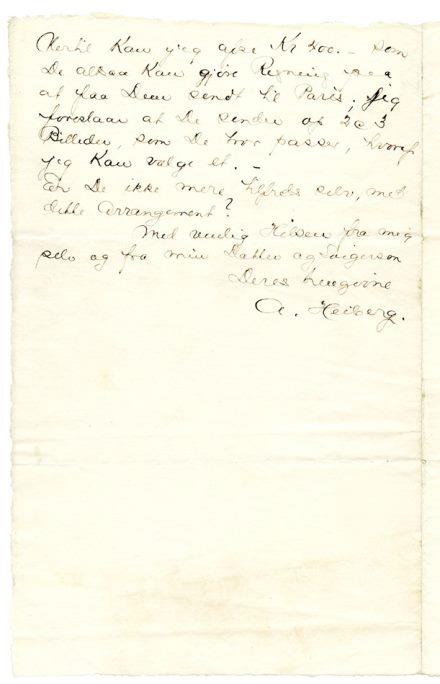 Hertil kan jeg afse Kr 300.- som
De altsaa kan gjøre Regning paa
at faa Dem sendt til Paris; Jeg
foreslaar at De sender op 2 a 3
Billeder, som De tror passer, hvoraf
jeg kan vælge et. -
Er De ikke mere tilfreds selv, med
dette Arrangement?
Med venlig Hilsen fra mig
selv og fra min Datter og
Deres hengivne
A. Heiberg.